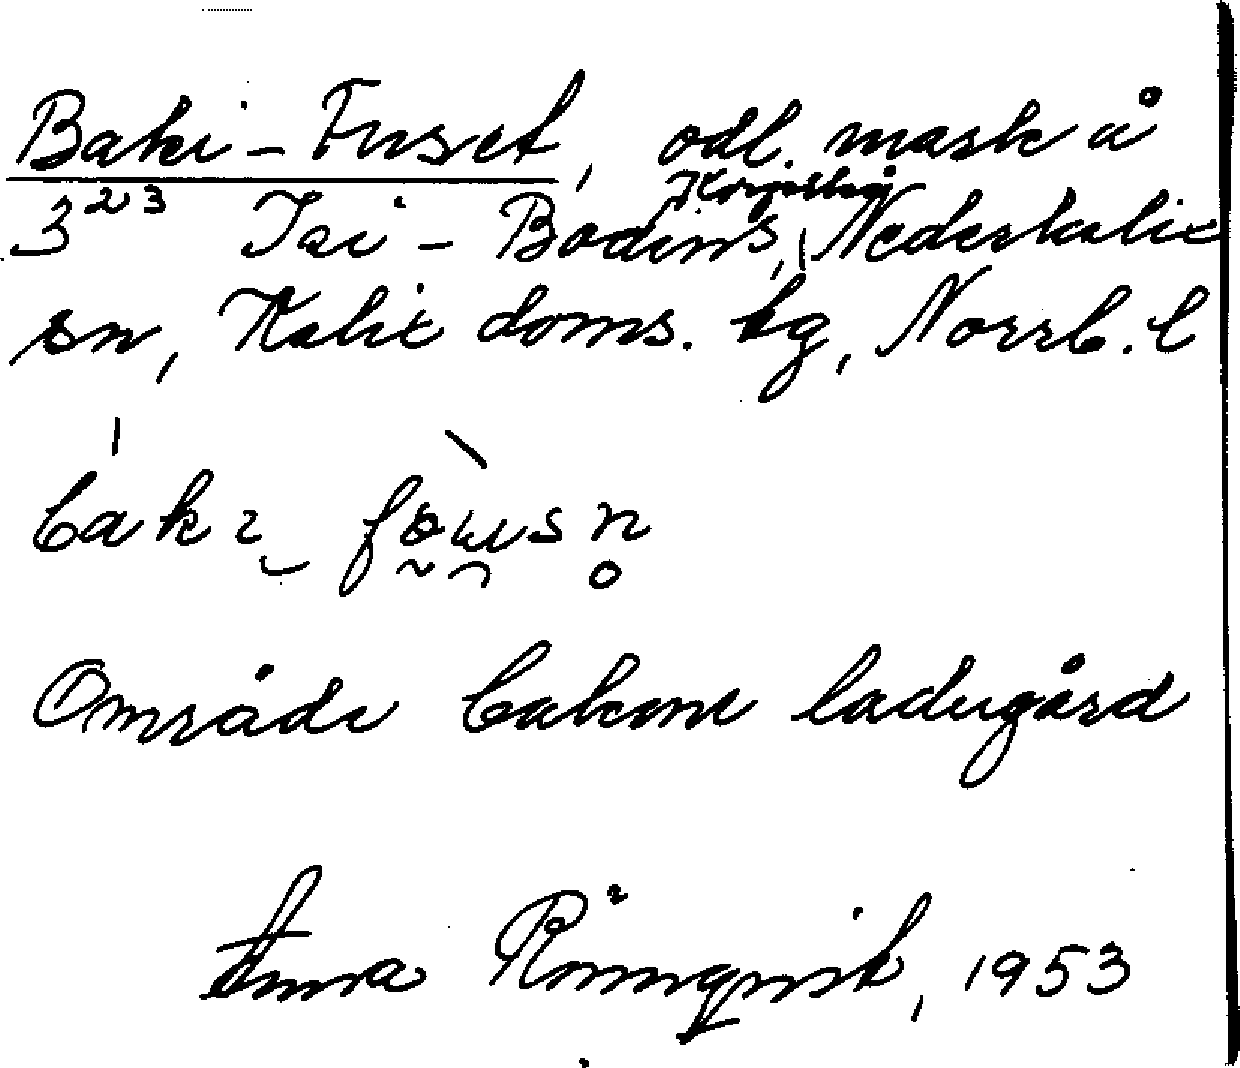 Baki-Fuset, odl. mark å
3²³ Isi-Bodins, Korpikå, Nederkalix
sn, Kalix doms. bg, Norrb. l
bakı fɷusn
Område bakom ladugård
Anna Rönnqvist, 1953